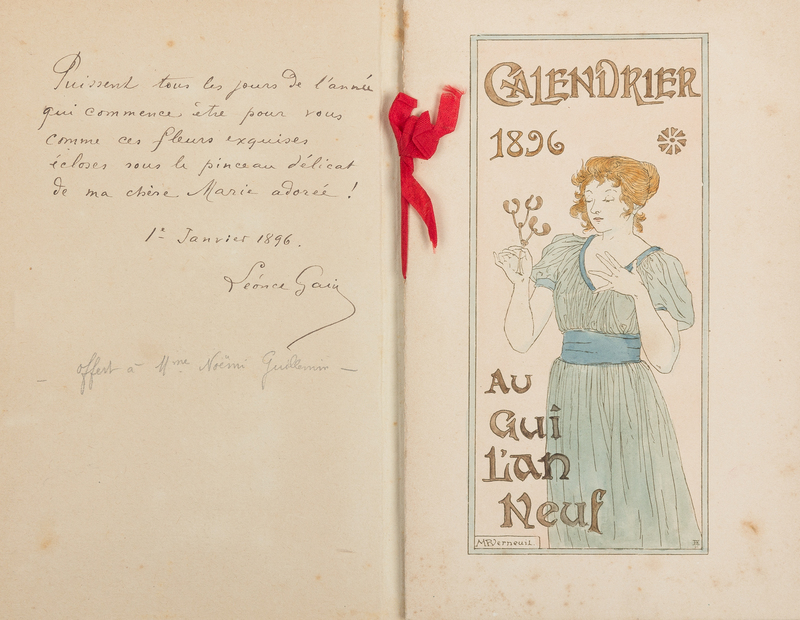 Puissent tous les jours de l'année
qui commence être pour vous
comme ces fleurs exquises
écloses sous le pinceau délicat
de ma chère Marie adorée !
1er Janvier 1896.
Léonce
— offert à Mme Noëmi Guillemin —
CALENDRIER
1896
AU
Gui
L'an
Neuf
M.P.Verneuil.